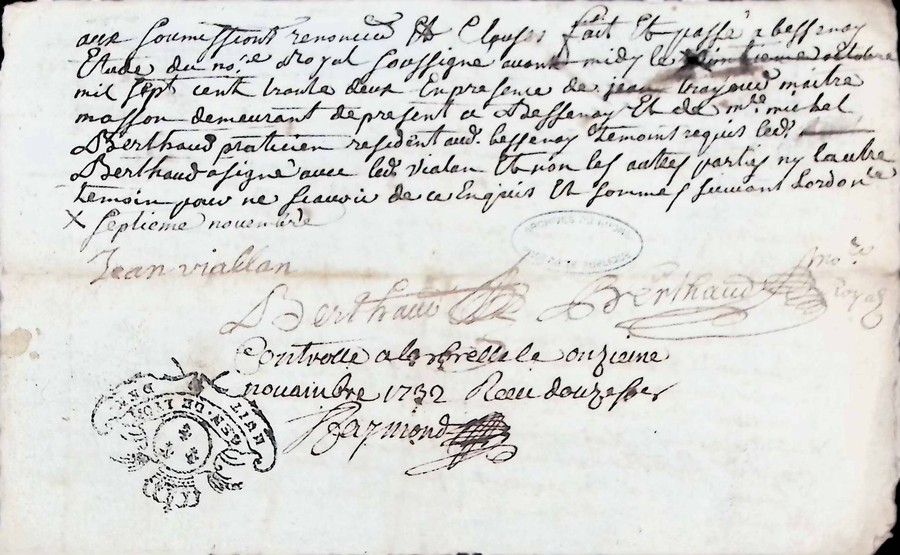 aux Soumissions renonciaõns Et Clauses fait Et passé a bessenay
Etude du no.re Royal Soussigné avant midy le octobre
mil sept cent trante deux En presence de jean trayaud maitre
masson demeurant de present a Bessenay Et de m.re michel
Berthaud praticien resident aud. bessenay temoins requis led.
Berthaud a signé avec led. vialan Et non les autes parties ny lautre
temoin pour ne scavoir de ce Enquis Et sommes suivant Lordon.ce
X septieme novembre
Jean viallan
Berthaud Berthaud no.re
Royal
Controllé a larbrelle le onzieme
nouambre 1732 Receu douze sols
Raymond
GEN. DE LYON
HUIT DEN